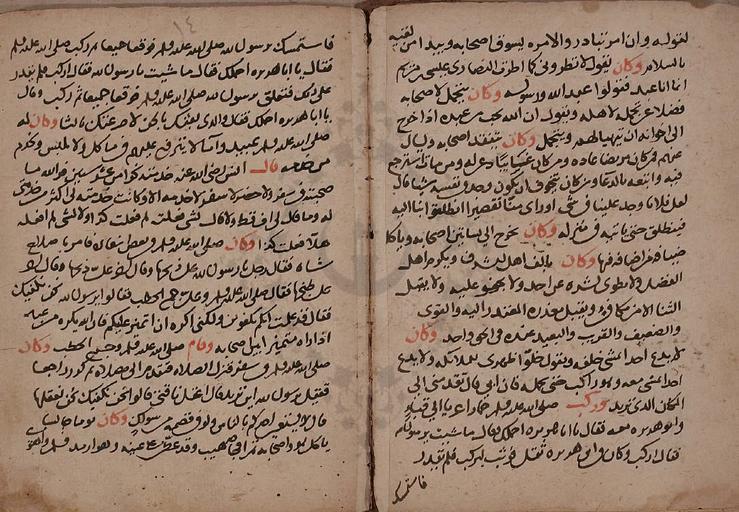 لقوله وان امر تبادر والامره يسوق اصحابه ويبدا من لقيه
بالسلام وكان يقول لا تطروني كما اطرت النصارى عيسى بن مريم
انما انا عبد فقولوا عبد الله ورسوله وكان يتجمل لاصحابه
فضلا عن تجمله لاهله ويقول ان الله يحب من عبده اذا خرج
الى اخوانه ان يتهيا لهم ويتجمل وكان يتفقد اصحابه ويسال
عنهم فمن كان مريضا عاده ومن كان غايبا دعا له ومن مات استرجع
فيه واتبعه بالدعا ومن كان يتخوف ان يكون وجد في نفسه شيا قال
لعل فلانا وجد علينا في شي او راى منا تقصيرا انطلقوا بنا اليه
فينطلق حتى ياتيه في منزله وكان يخرج الى بساتين اصحابه وياكل
ضيافة من اضافه فيها وكان يالف اهل الشرف ويكرم اهل
الفضل ولا يطوي بشره عن احد ولا يجفو عليه ولا يقبل
الثنا الا من مكافي ويقبل معذرة المعتذر اليه والقوي
والضعيف والقريب والبعيد عنده في الحق واحد وكان
لا يدع احدا يمشي خلفه ويقول خلوا ظهري للملائكة ولا يدع
احدا يمشي معه وهو راكب حتى يحمله فان ابى قال تقدمني الى
المكان الذي تريد وركب صلى الله عليه وسلم حمارا عريا الى قبا
وابو هريرة معه فقال يا ابا هريرة احملك فقال ما شيت يرسول الله
فقال اركب وكان في ابي هريرة ثقل فوثب ليركب فلم يقدر
فاستمسك
١٤
فاستمسك برسول الله صلى الله عليه وسلم فوقعا جميعا ثم ركب صلى الله عليه وسلم
فقال يا ابا هريرة احملك فقال ما شيت يا رسول الله فقال اركب فلم يقدر
على ذلك فتعلق برسول الله صلى الله عليه وسلم فوقعا جميعا ثم ركب وقال
يا ابا هريرة احملك فقال والذي بعثك بالحق لا صرعتك ثالثا وكان له
صلى الله عليه وسلم عبيد واما لا يترفع عليهم في ماكل ولا ملبس ويخدم
من خدمه قال انس رضي الله عنه خدمته نحوا من عشر سنين فوالله ما
صحبته في سفر ولا حضر لاخدمه الا وكانت خدمته لي اكثر من خدمتي
له وما قال لي اف قط ولا قال لشي فعلته لم فعلت كذا ولا لشي لم افعله
هلا فعلت كذا وكان صلى الله عليه وسلم في بعض اسفاره فامر باصلاح
شاة فقال رجل يا رسول الله علي ذبحها وقال اخر علي سلخها وقال اخر
علي طبخها فقال صلى الله عليه وسلم وعلي جمع الحطب فقالوا يرسول الله نحن نكفيك
فقال قد علمت انكم تكفوني ولكني اكره ان اتميز عليكم فان الله يكره من عبده
اذا راه متميزا بين اصحابه وقام صلى الله عليه وسلم وجمع الحطب وكان
صلى الله عليه وسلم في سفر فنزل الى الصلاة فتقدم الى مصلاه ثم كر راجعا
فقيل يرسول الله اين تريد قال اعقل ناقتي قالوا نحن نكفيك نحن نعقلها
قال لا يستعن احدكم بالناس ولو في قضمة من سواك وكان يوما جالسا